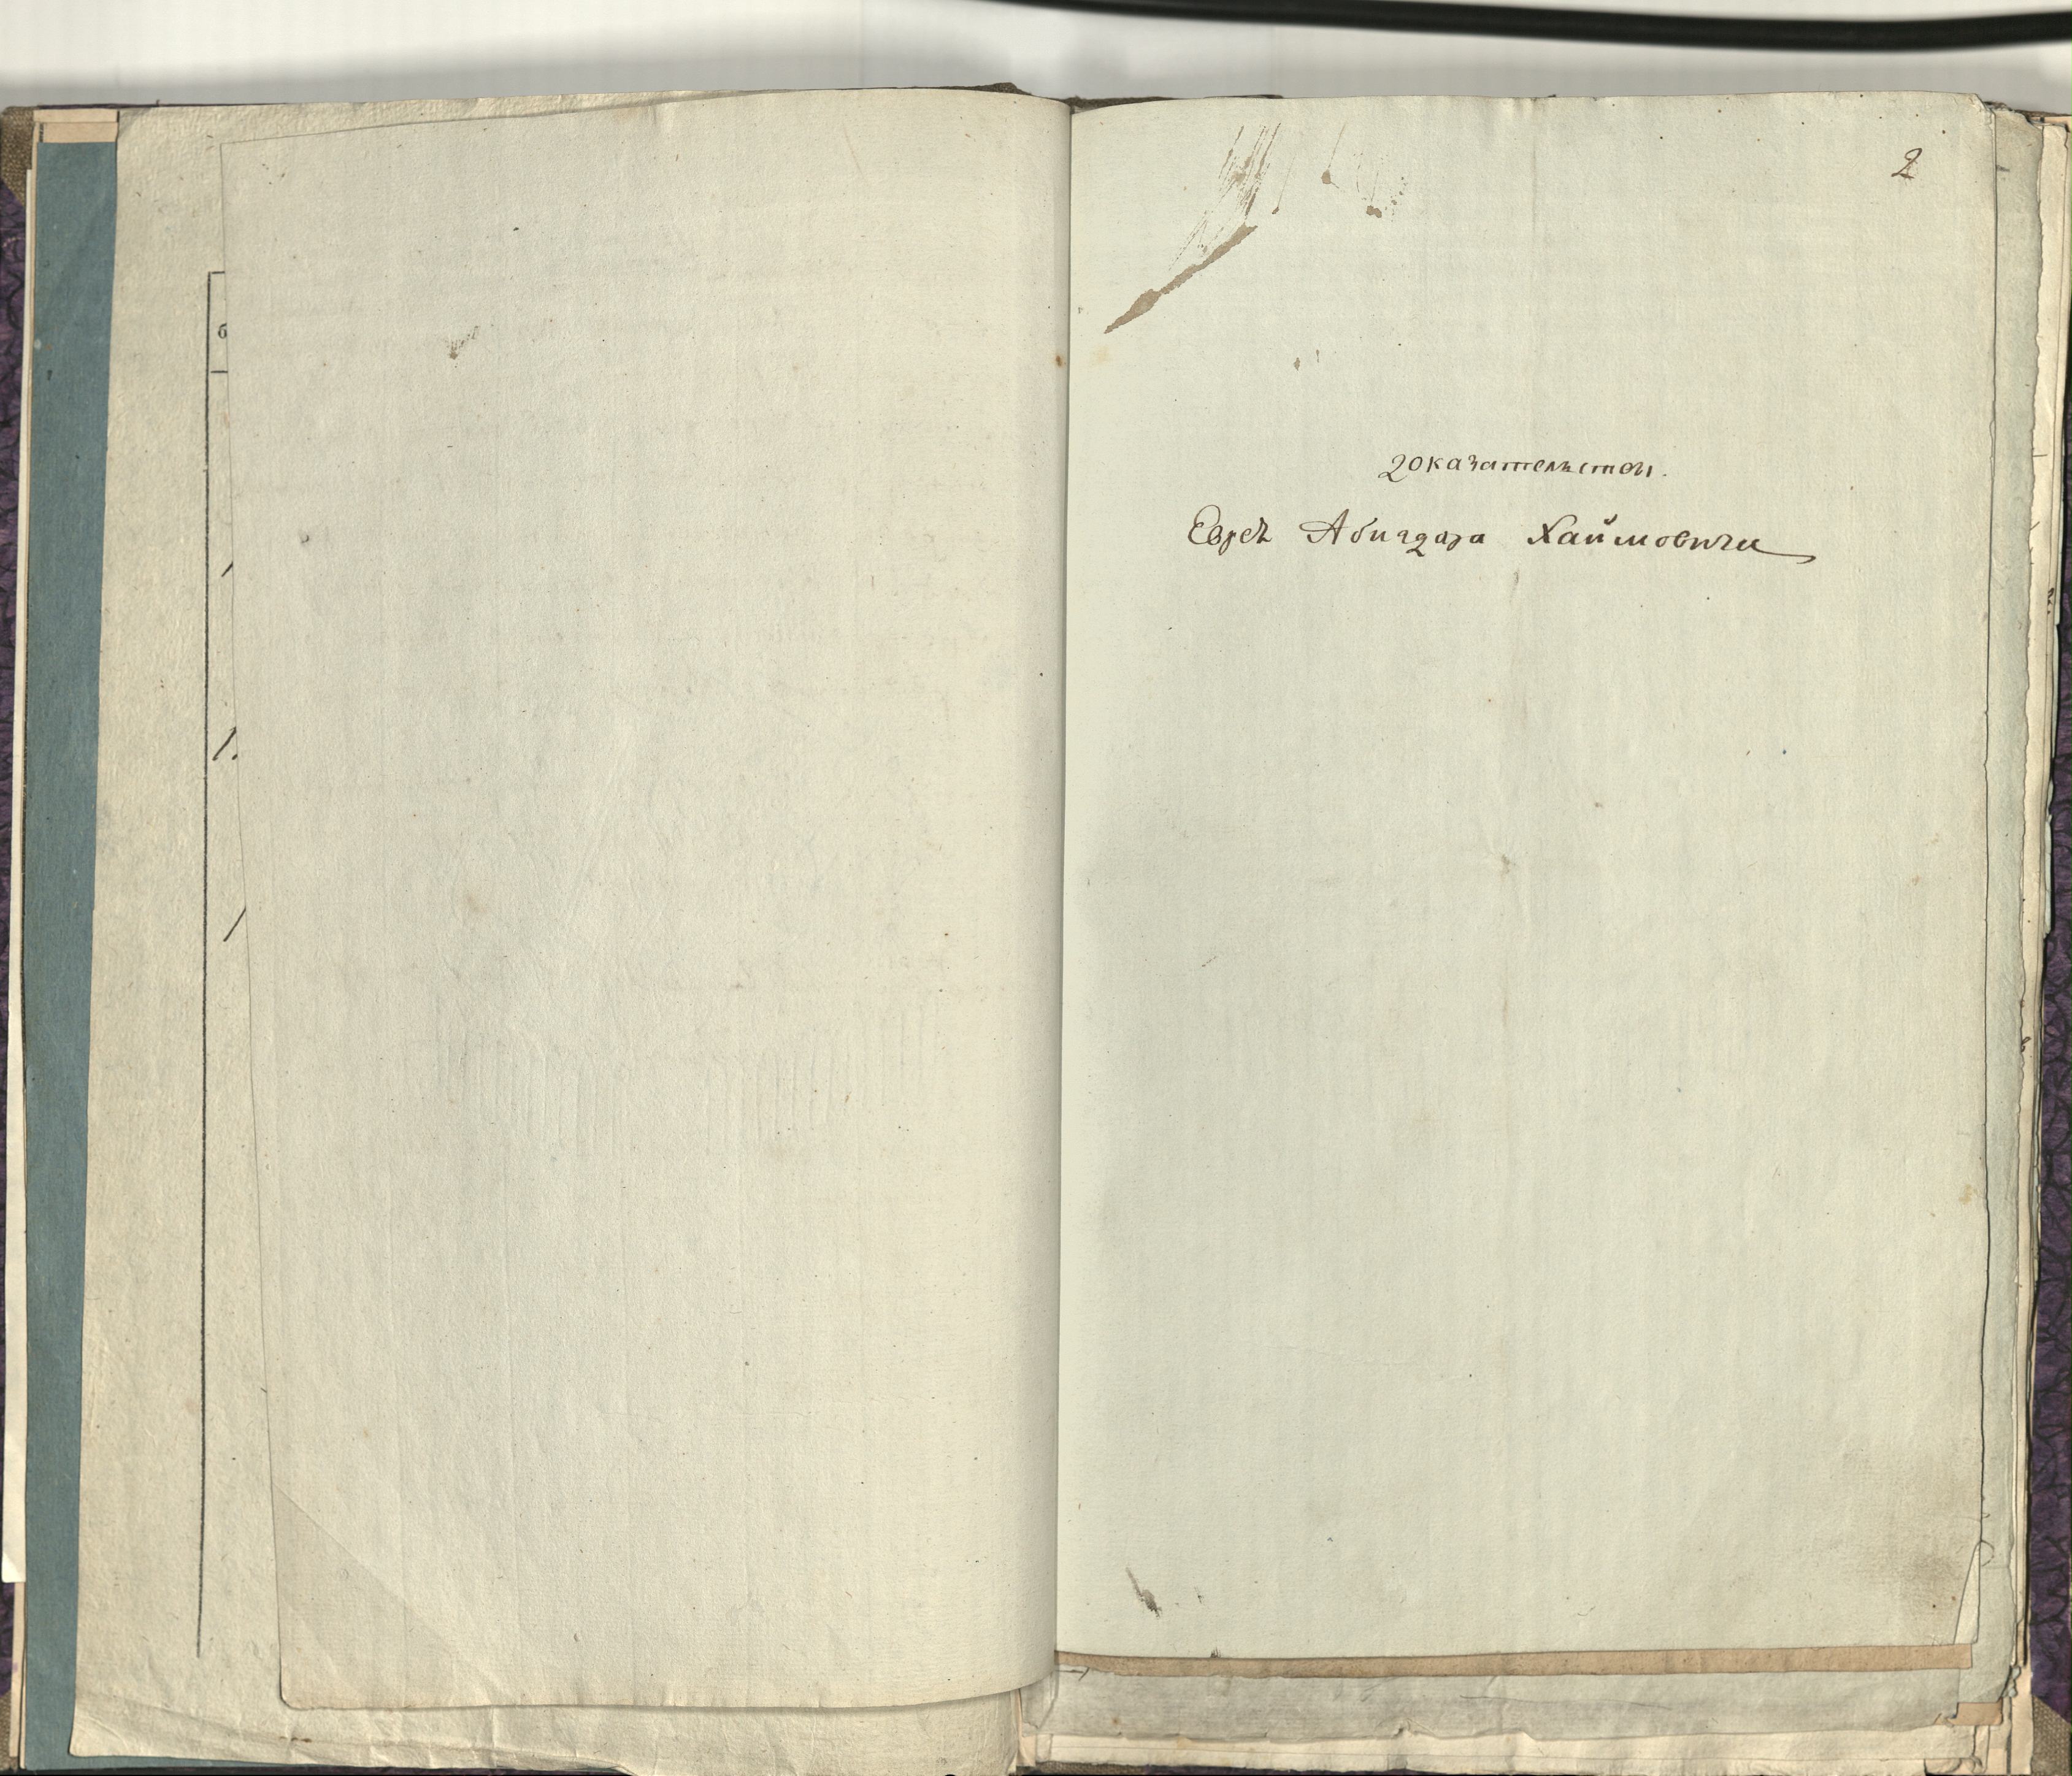 2
доказательствы.
Еврея Абигдора Хаймовича
б
1.
1